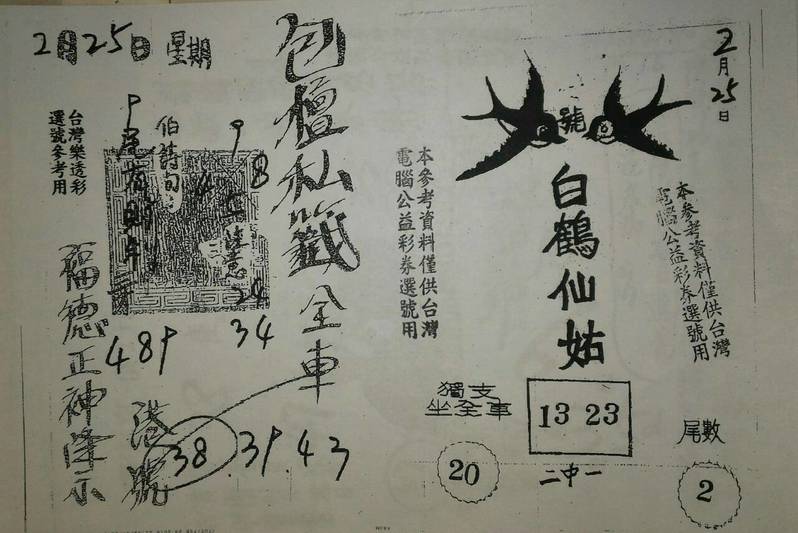 2月25日 星期
包檀私籤全車
台灣樂透彩
選號參考用
伯詩句
福德正神降示
489
34
港號
38.39.43
本參考資料僅供台灣
電腦公益彩券選號用
2月25日
號
白鶴仙姑
本參考資料僅供台灣
電腦公益彩券選號用
獨支
坐全車
20
13 23
二中一
尾數
2